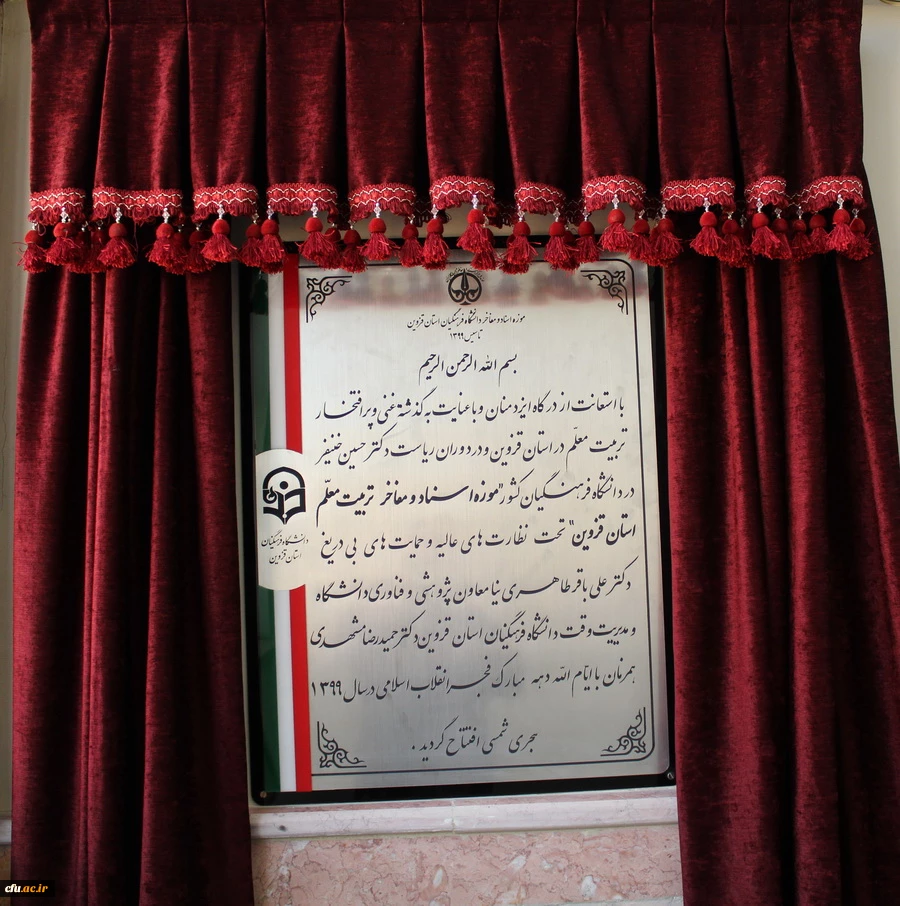 موزه اسناد و مفاخر دانشگاه فرهنگیان استان قزوین
تاسیس ۱۳۹۹
بسم الله الرحمن الرحیم
با استعانت از درگاه ایزد منان و با عنایت به گذشته غنی و پرافتخار
تربیت معلّم در استان قزوین و در دوران ریاست دکتر حسین خنیفر
در دانشگاه فرهنگیان کشور "موزه اسناد و مفاخر تربیت معلّم
استان قزوین" تحت نظارت های عالیه و حمایت های بی دریغ
دکتر علی باقر طاهری نیا معاون پژوهشی و فناوری دانشگاه
و مدیریت وقت دانشگاه فرهنگیان استان قزوین دکتر حمیدرضا مشهدی
همزمان با ایّام الله دهه مبارک فجر انقلاب اسلامی در سال ۱۳۹۹
هجری شمسی افتتاح گردید .
دانشگاه فرهنگیان
استان قزوین
cfu.ac.ir